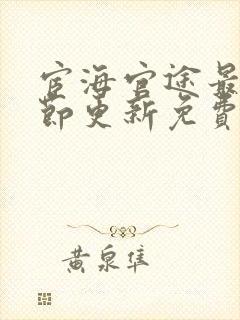 宦海官途最
节更新免费
黄泉隼